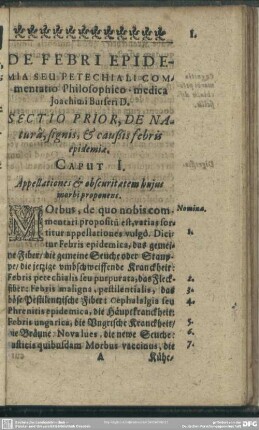 1.
DE FEBRI EPIDE-
MIA SEU PETECHIALI COM-
mentatio Philosophico-medica
Joachimi Burseri D.
SECTIO PRIOR, DE NA-
turâ, signis, & caussis febris
epidemiæ.
CAPUT I.
Appellationes & obscuritatem hujus
morbi proponens.
MOrbus, de quo nobis com- Nomina.
mentari propositũ est, varias sor-
titur appellationes vulgò. Dici-
tur Febris epidemica, das gemei- 1.
ne Fiber/ die gemeine Seuche oder Strauß-
pe/ die jetzige umbschweiffende Kranckheit:
Febris petechialis seu purpurata, das Fleck- 2.
fiber: Febris maligna, pestilentialis, das 3.
böse Pestilentzische Fiber: Cephalalgia seu 4.
Phrenitis epidemica, die Häuptkranckheit:
Febris ungarica, die Ungrische Kranckheit/ 5.
die Bräune: Nova lues, die newe Seuche: 6.
rusticis quibusdam Morbus vaccinus, die 7.
A Kühe/